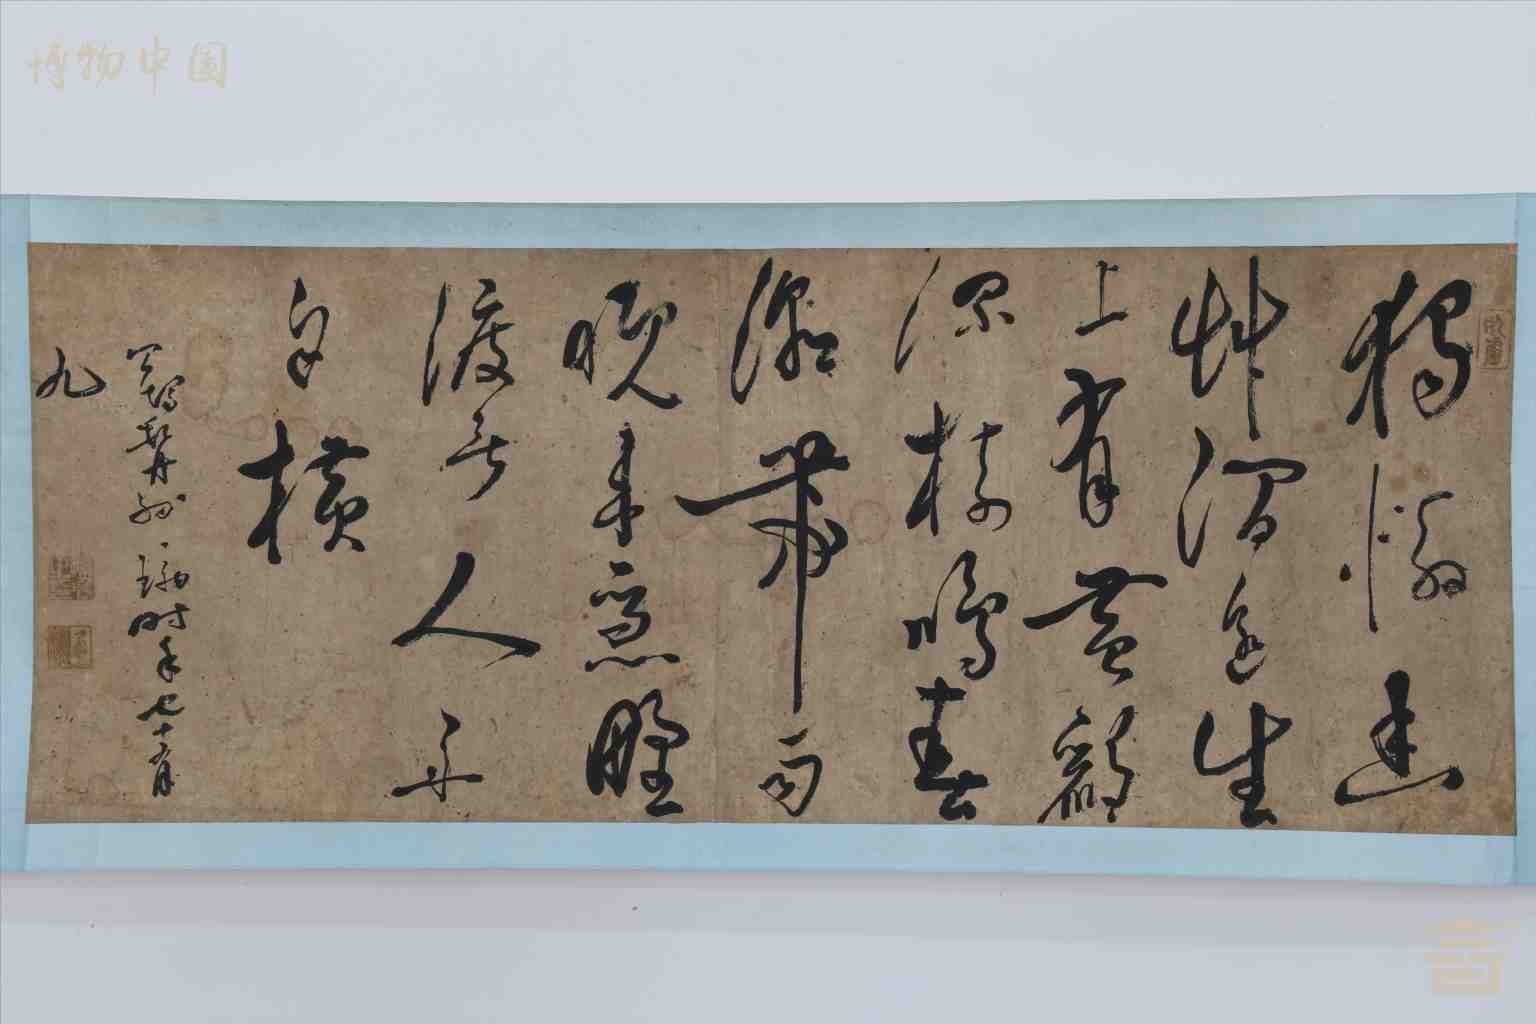 博物中国
獨憐幽
艸澗邊生
上有黃鸝
深樹鳴春
潮帶雨
晚來急野
渡無人舟
自橫
時年七十有
九